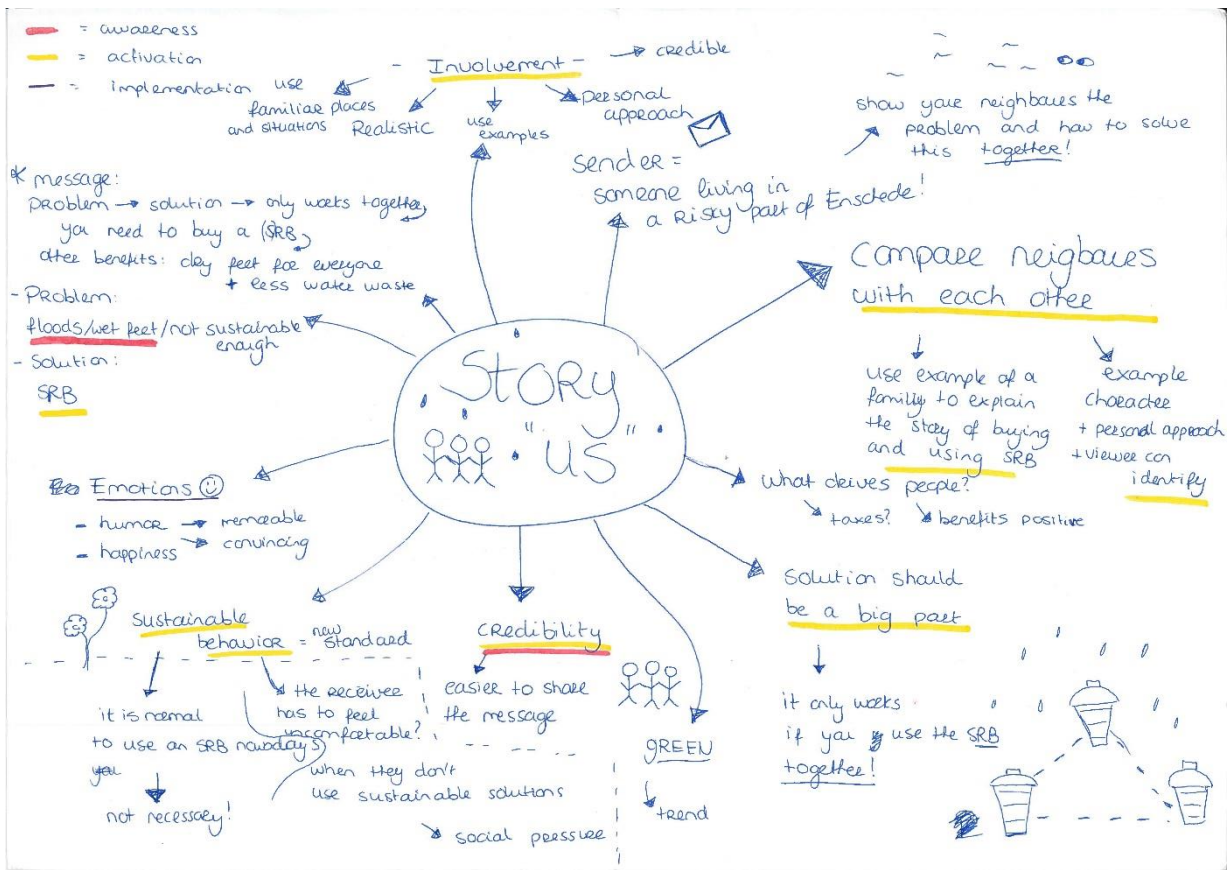 = awareness
= activation
= implementation
- Involvement -
→ credible
use
familiar places
and situations
Realistic
use
examples
personal
approach
sender =
someone living in
a Risky part of Enschede!
show youre neighboures the
problem and how to solve
this together!
* message:
problem → solution → only works together
you need to buy a (SRB)
other benefits: dry feet for everyone
+ less water waste
- Problem:
floods/wet feet/not sustainable
enough
- Solution:
SRB
Compare neigboures
with each other
use example of a
family to explain
the story of buying
and using SRB
example
character
+ personal approach
+ viewer can
identify
STORY
"US"
What drives people?
taxes?
benefits positive
Emotions
- humor → remeable
- happiness → convincing
solution should
be a big part
it only works
if you use the SRB
together!
sustainable
behavior = new standard
it is normal
to use an SRB nowdays
you
not necessary!
the receiver
has to feel
uncomfortable?
when they don't
use sustainable solutions
social pressure
credibility
easier to share
the message
gREEN
trend